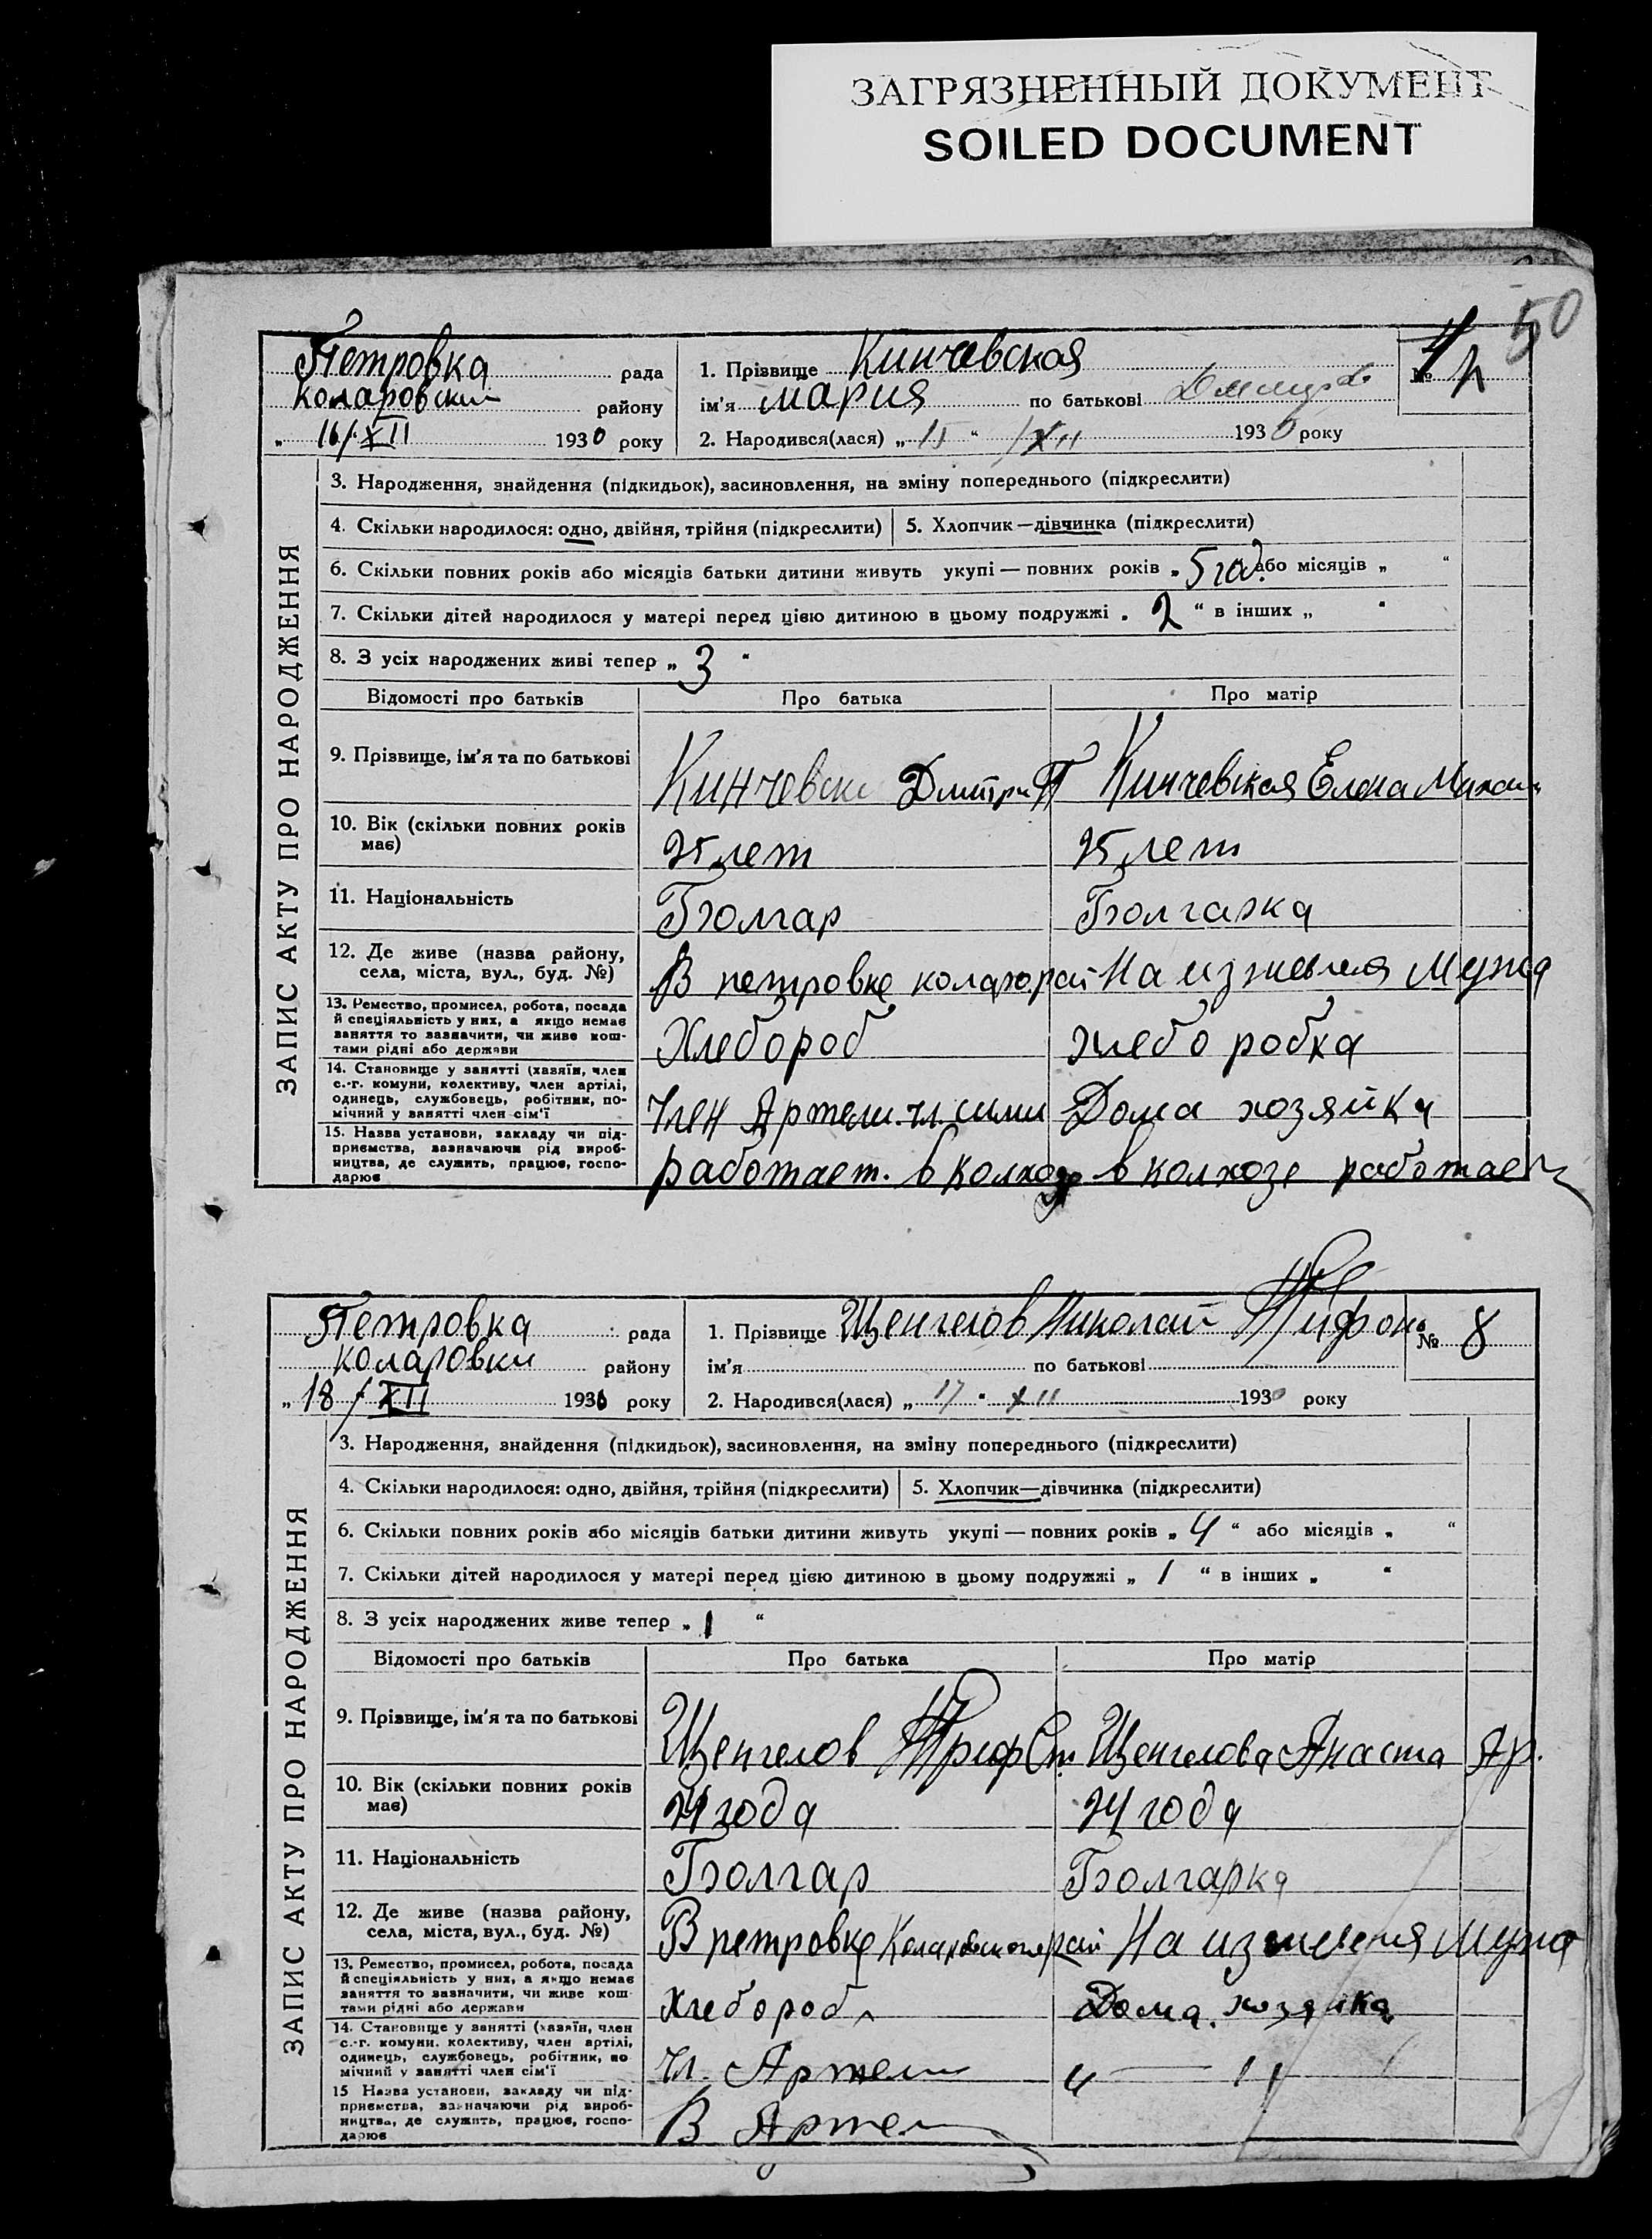 ЗАГРЯЗНЕННЫЙ ДОКУМЕНТ
SOILED DOCUMENT
50
Петровка рада
Коларовский району
„16/XII 1930 року
1. Прізвище Кинчевская
ім'я Мария по батькові
№
2. Народився(лася) „15“ /XII 1930 року
ЗАПИС АКТУ ПРО НАРОДЖЕННЯ
3. Народження, знайдення (підкидьок), засиновлення, на зміну попереднього (підкреслити)
4. Скільки народилося: одно, двійня, трійня (підкреслити) 5. Хлопчик—дівчинка (підкреслити)
6. Скільки повних років або місяців батьки дитини живуть укупі — повних років „5 год. або місяців „ “
7. Скільки дітей народилося у матері перед цією дитиною в цьому подружжі „2“ в інших „ “
8. З усіх народжених живі тепер „3“
Відомості про батьків Про батька Про матір
9. Прізвище, ім'я та по батькові Кинчевски Дмитри П Кинчевская Елена Михаи
10. Вік (скільки повних років має) 25 лет 25 лет
11. Національність Болгар Болгарка
12. Де живе (назва району, села, міста, вул., буд. №) В петровке колар.рай На иждивения Мужа
13. Ремество, промисел, робота, посада й спеціяльність у них, а якщо немає заняття то зазначити, чи живе коштами рідні або держави Хлебороб хлебо робка
14. Становище у занятті (хазяїн, член с.-г. комуни, колективу, член артілі, одинець, службовець, робітник, помічний у занятті член сім'ї Член Артели. чл. Дома хозяйка
15. Назва установи, закладу чи підприємства, зазначаючи рід виробництва, де служить, працює, господарює работает. в колхозе в колхозе работает
Петровка рада
Коларовки району
„18/XII 1930 року
1. Прізвище Щенгелов Николай Трифон
№ 8
ім'я по батькові
2. Народився(лася) „17“ XII 1930 року
ЗАПИС АКТУ ПРО НАРОДЖЕННЯ
3. Народження, знайдення (підкидьок), засиновлення, на зміну попереднього (підкреслити)
4. Скільки народилося: одно, двійня, трійня (підкреслити) 5. Хлопчик—дівчинка (підкреслити)
6. Скільки повних років або місяців батьки дитини живуть укупі — повних років „4“ або місяців „ “
7. Скільки дітей народилося у матері перед цією дитиною в цьому подружжі „1“ в інших „ “
8. З усіх народжених живе тепер „1“
Відомості про батьків Про батька Про матір
9. Прізвище, ім'я та по батькові Щенгелов Триф Ст. Щенгелова Анаста Ар.
10. Вік (скільки повних років має) 24 года 24 года
11. Національність Болгар Болгарка
12. Де живе (назва району, села, міста, вул., буд. №) В петровке Коларовского рай На иждивения Мужа
13. Ремество, промисел, робота, посада й спеціяльність у них, а якщо немає заняття то зазначити, чи живе коштами рідні або держави Хлебороб Дома. хозяйка
14. Становище у занятті (хазяїн, член с.-г. комуни, колективу, член артілі, одинець, службовець, робітник, помічний у занятті член сім'ї Чл. Артели „ — „
15 Назва установи, закладу чи підприємства, зазначаючи рід виробництва, де служить, працює, господарює В Артел